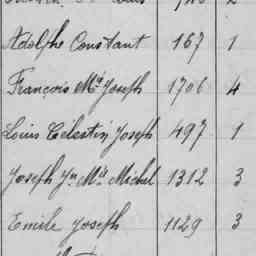 Adolphe Constant 167 1
François Mie Joseph 1706 4
Louis Célestin Joseph 497 1
Joseph Jn Mie Michel 1312 3
Emile Joseph 1129 3